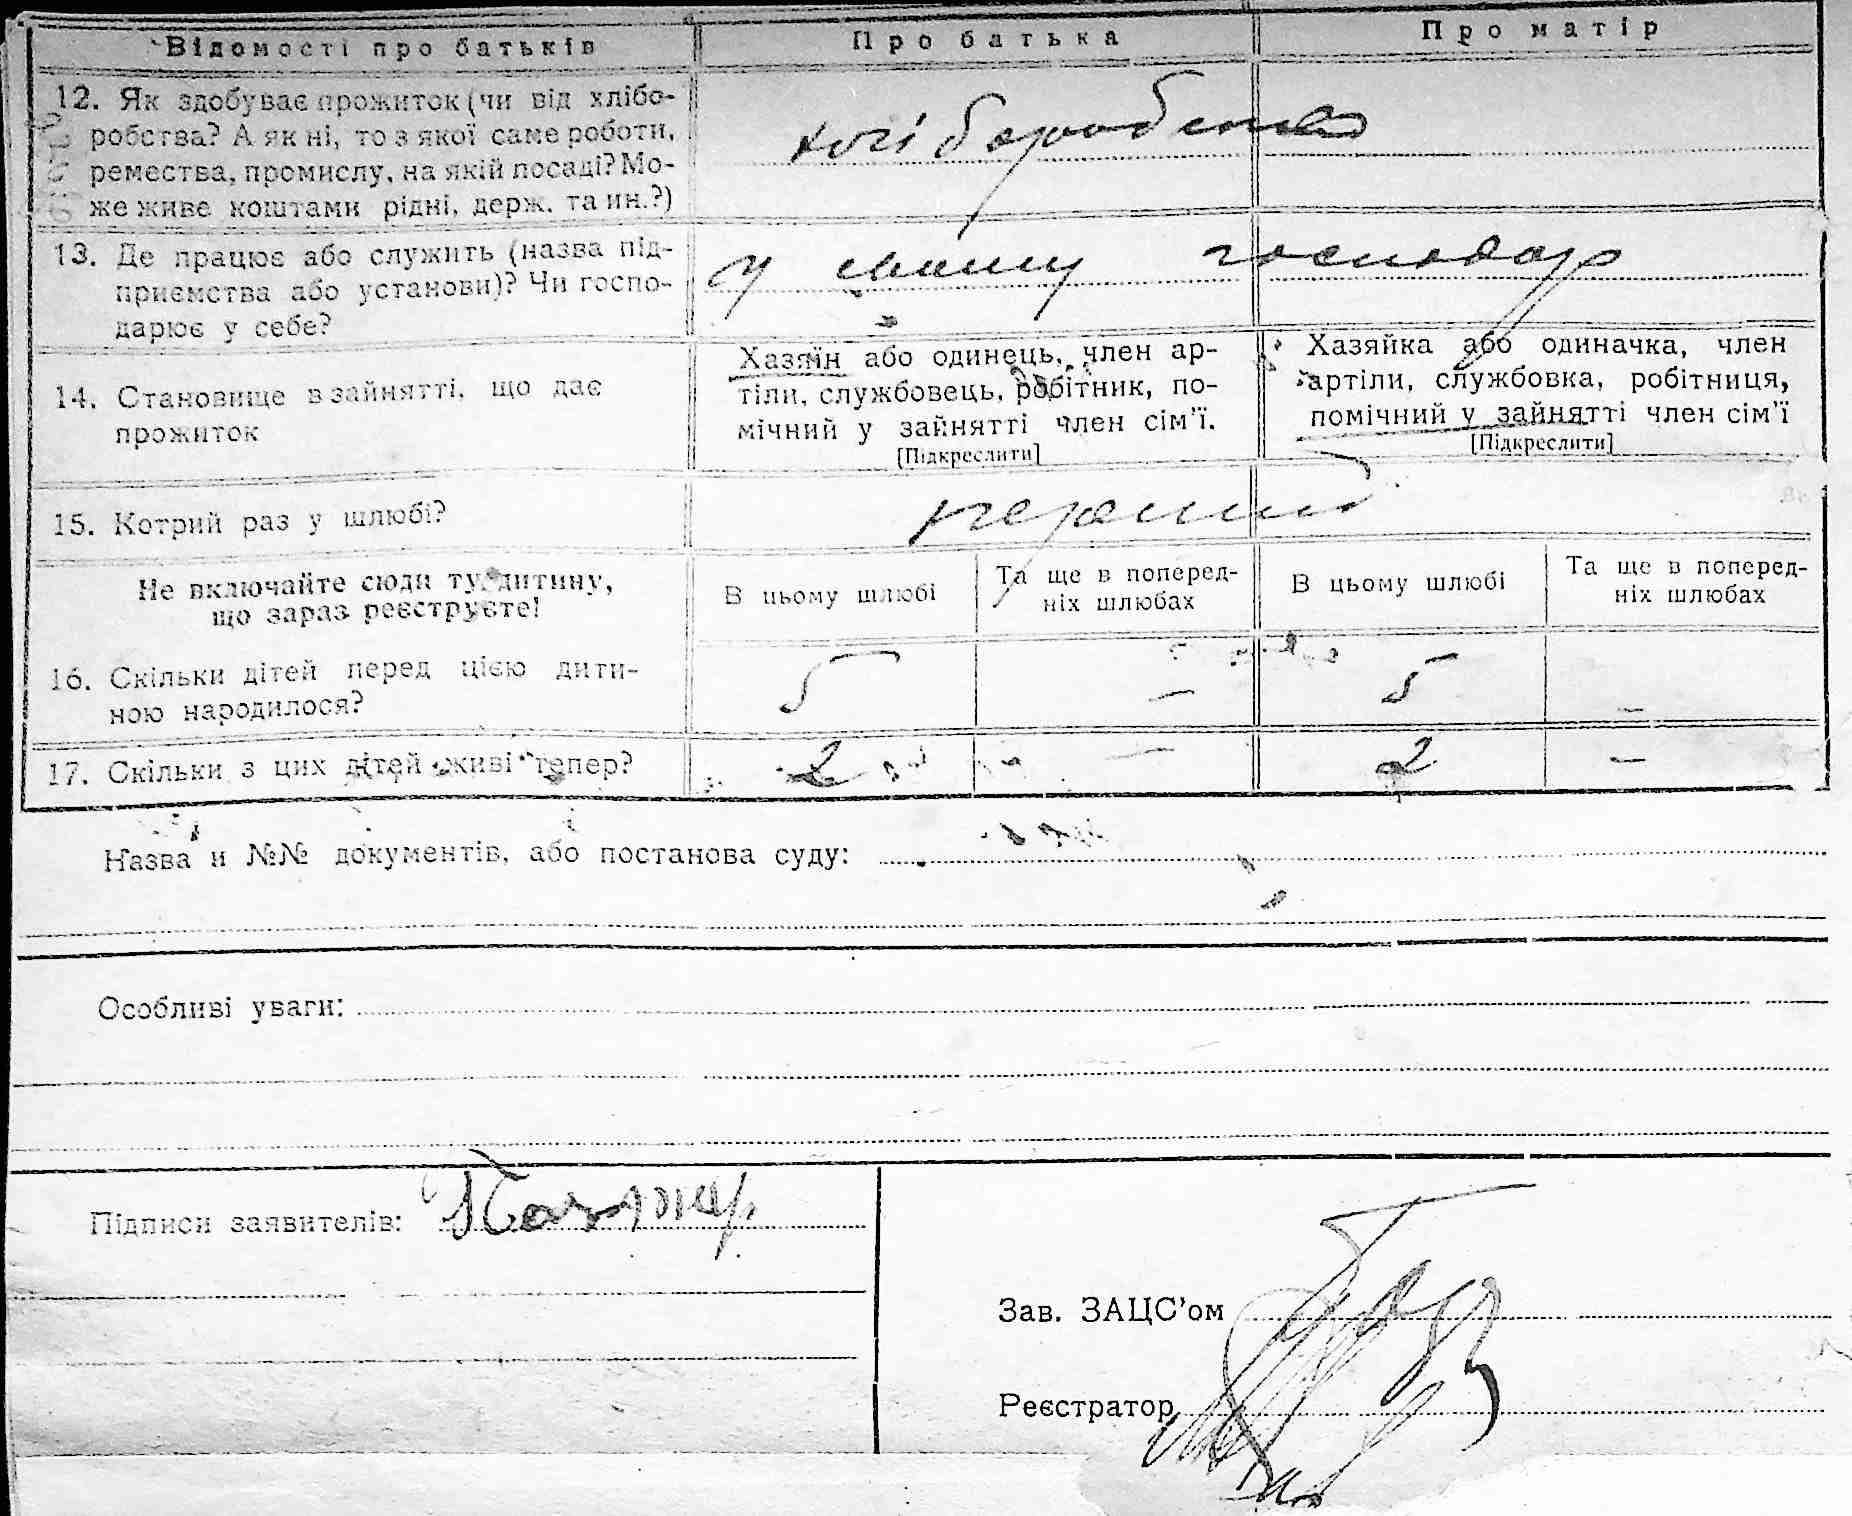 Відомості про батьків
Про батька
Про матір
12. Як здобуває прожиток (чи від хлібо-
робства? А як ні, то з якої саме роботи,
ремества, промислу, на якій посаді? Мо-
же живе коштами рідні, держ. та ин.?)
13. Де працює або служить (назва під-
приємства або установи)? Чи госпо-
дарює у себе?
у своему господар
14. Становище в зайнятті, що дає
прожиток
Хазяїн або одинець, член ар-
тіли, службовець, робітник, по-
мічний у зайнятті член сім'ї.
[Підкреслити]
Хазяйка або одиначка, член
артіли, службовка, робітниця,
помічний у зайнятті член сім'ї
[Підкреслити]
15. Котрий раз у шлюбі?
перший
Не включайте сюди ту дитину,
що зараз реєструєте!
В цьому шлюбі
Та ще в поперед-
ніх шлюбах
В цьому шлюбі
Та ще в поперед-
ніх шлюбах
16. Скільки дітей перед цією дити-
ною народилося?
5 – 5 –
17. Скільки з цих дітей живі тепер?
2 – 2 –
Назва и №№ документів, або постанова суду:
Особливі уваги:
Підписи заявителів:
Зав. ЗАЦС'ом
Реєстратор